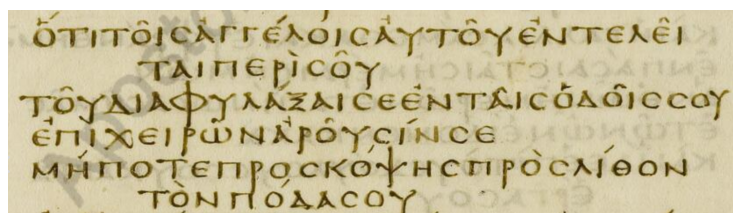 ὅτιτοῖσἀγγέλοισἀυτοῦἐντελεῖ
ταιπερὶσοῦ
τοῦδιαφυλάξαισεἐνταῖσὁδοῖσσου
ἐπιχειρῶνἀροῦσίνσε
μήποτεπροσκόψησπρὸσλίθον
τὸνπόδασου